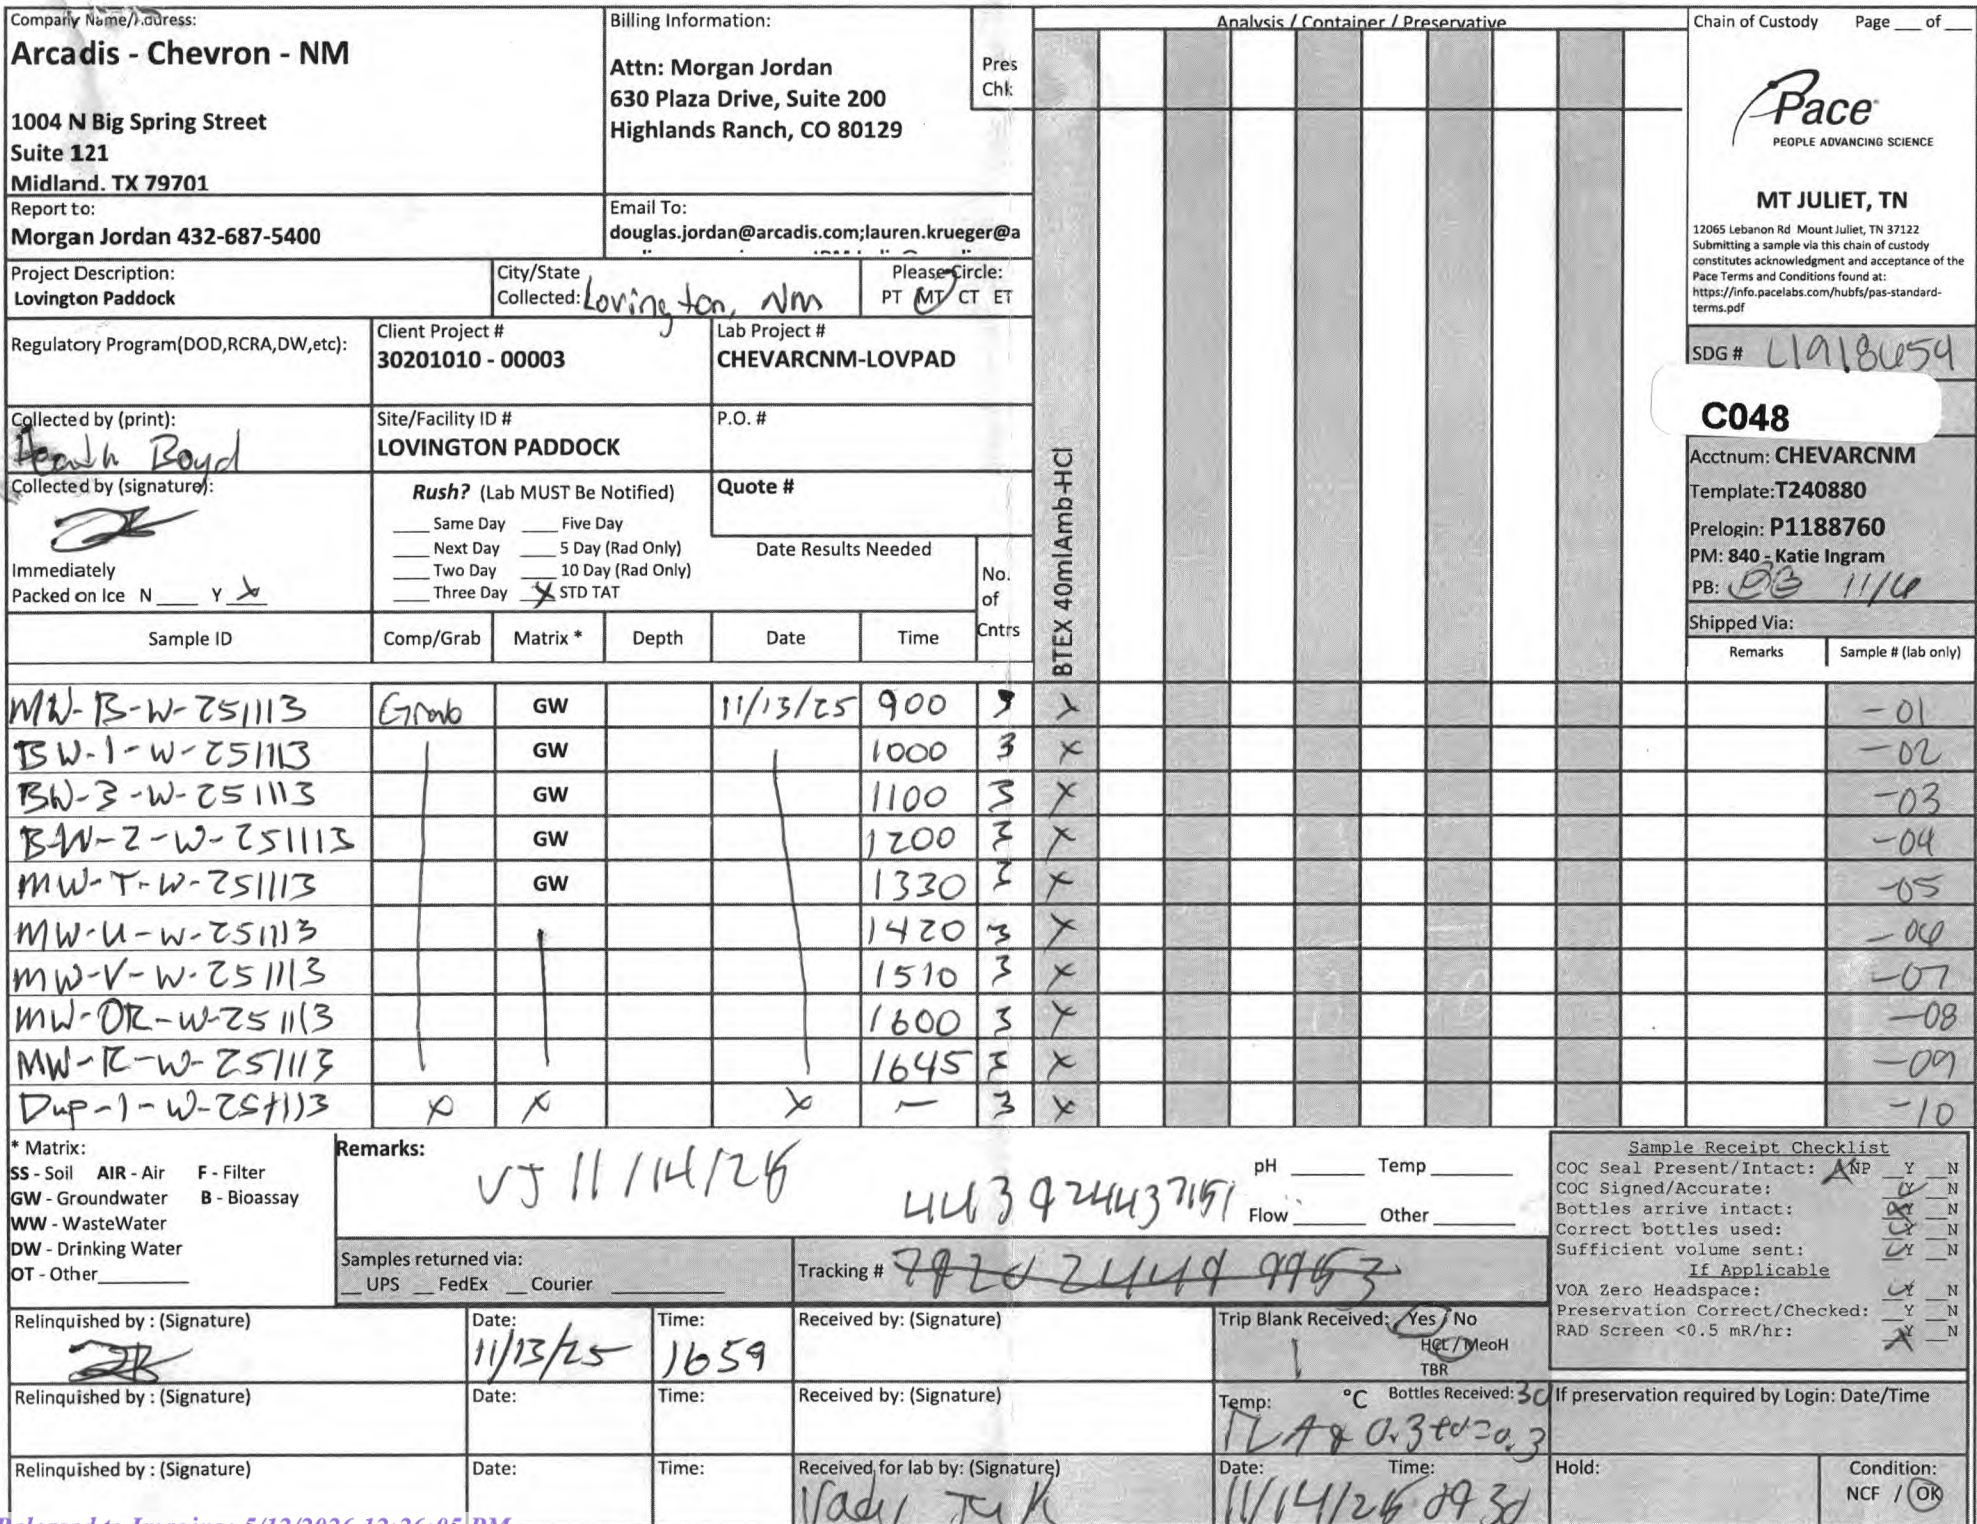 Company Name/Address:
Arcadis - Chevron - NM
1004 N Big Spring Street
Suite 121
Midland, TX 79701
Billing Information:
Attn: Morgan Jordan
630 Plaza Drive, Suite 200
Highlands Ranch, CO 80129
Pres
Chk
Analysis / Container / Preservative
Chain of Custody Page ___ of ___
Pace
PEOPLE ADVANCING SCIENCE
MT JULIET, TN
12065 Lebanon Rd Mount Juliet, TN 37122
Submitting a sample via this chain of custody
constitutes acknowledgment and acceptance of the
Pace Terms and Conditions found at:
https://info.pacelabs.com/hubfs/pas-standard-
terms.pdf
Report to:
Morgan Jordan 432-687-5400
Email To:
douglas.jordan@arcadis.com;lauren.krueger@a
Project Description:
Lovington Paddock
City/State
Collected: Lovington, NM
Please Circle:
PT MT CT ET
Regulatory Program(DOD,RCRA,DW,etc):
Client Project #
30201010 - 00003
Lab Project #
CHEVARCNM-LOVPAD
SDG # L1918654
C048
Acctnum: CHEVARCNM
Template:T240880
Prelogin: P1188760
PM: 840 - Katie Ingram
PB: 11/6
Shipped Via:
Collected by (print):
Heath Boyd
Site/Facility ID #
LOVINGTON PADDOCK
P.O. #
Collected by (signature):
Immediately
Packed on Ice N ____ Y X
Rush? (Lab MUST Be Notified)
____ Same Day ____ Five Day
____ Next Day ____ 5 Day (Rad Only)
____ Two Day ____ 10 Day (Rad Only)
____ Three Day X STD TAT
Quote #
Date Results Needed
No.
of
Cntrs
BTEX 40mlAmb-HCl
Sample ID Comp/Grab Matrix * Depth Date Time Remarks Sample # (lab only)
MW-B-W-251113 Grab GW 11/13/25 900 3 X -01
BW-1-W-251113 GW 1000 3 X -02
BW-3-W-251113 GW 1100 3 X -03
BW-2-W-251113 GW 1200 3 X -04
MW-T-W-251113 GW 1330 3 X -05
MW-U-W-251113 1420 3 X -06
MW-V-W-251113 1510 3 X -07
MW-DR-W-251113 1600 3 X -08
MW-R-W-251113 1645 3 X -09
Dup-1-W-251113 X X X — 3 X -10
* Matrix:
SS - Soil AIR - Air F - Filter
GW - Groundwater B - Bioassay
WW - WasteWater
DW - Drinking Water
OT - Other________
Remarks:
VJ 11/14/25
443924437151
pH ______ Temp ______
Flow ______ Other ______
Samples returned via:
__ UPS __ FedEx __ Courier ________
Tracking #
Sample Receipt Checklist
COC Seal Present/Intact: NP Y N
COC Signed/Accurate: Y N
Bottles arrive intact: Y N
Correct bottles used: Y N
Sufficient volume sent: Y N
If Applicable
VOA Zero Headspace: Y N
Preservation Correct/Checked: Y N
RAD Screen <0.5 mR/hr: Y N
Relinquished by : (Signature)
Date:
11/13/25
Time:
1659
Received by: (Signature)
Trip Blank Received: Yes / No
1 HCL / MeoH
TBR
Relinquished by : (Signature)
Date:
Time:
Received by: (Signature)
Temp: °C Bottles Received: 30
0.3+0=0.3
If preservation required by Login: Date/Time
Relinquished by : (Signature)
Date:
Time:
Received for lab by: (Signature)
Date: Time:
11/14/25 0930
Hold:
Condition:
NCF / OK